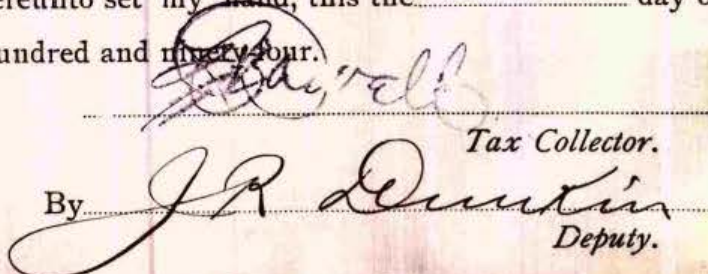 ereunto set my hand, this the day o
undred and ninety-four.
Tax Collector.
By J R Dunkin
Deputy.